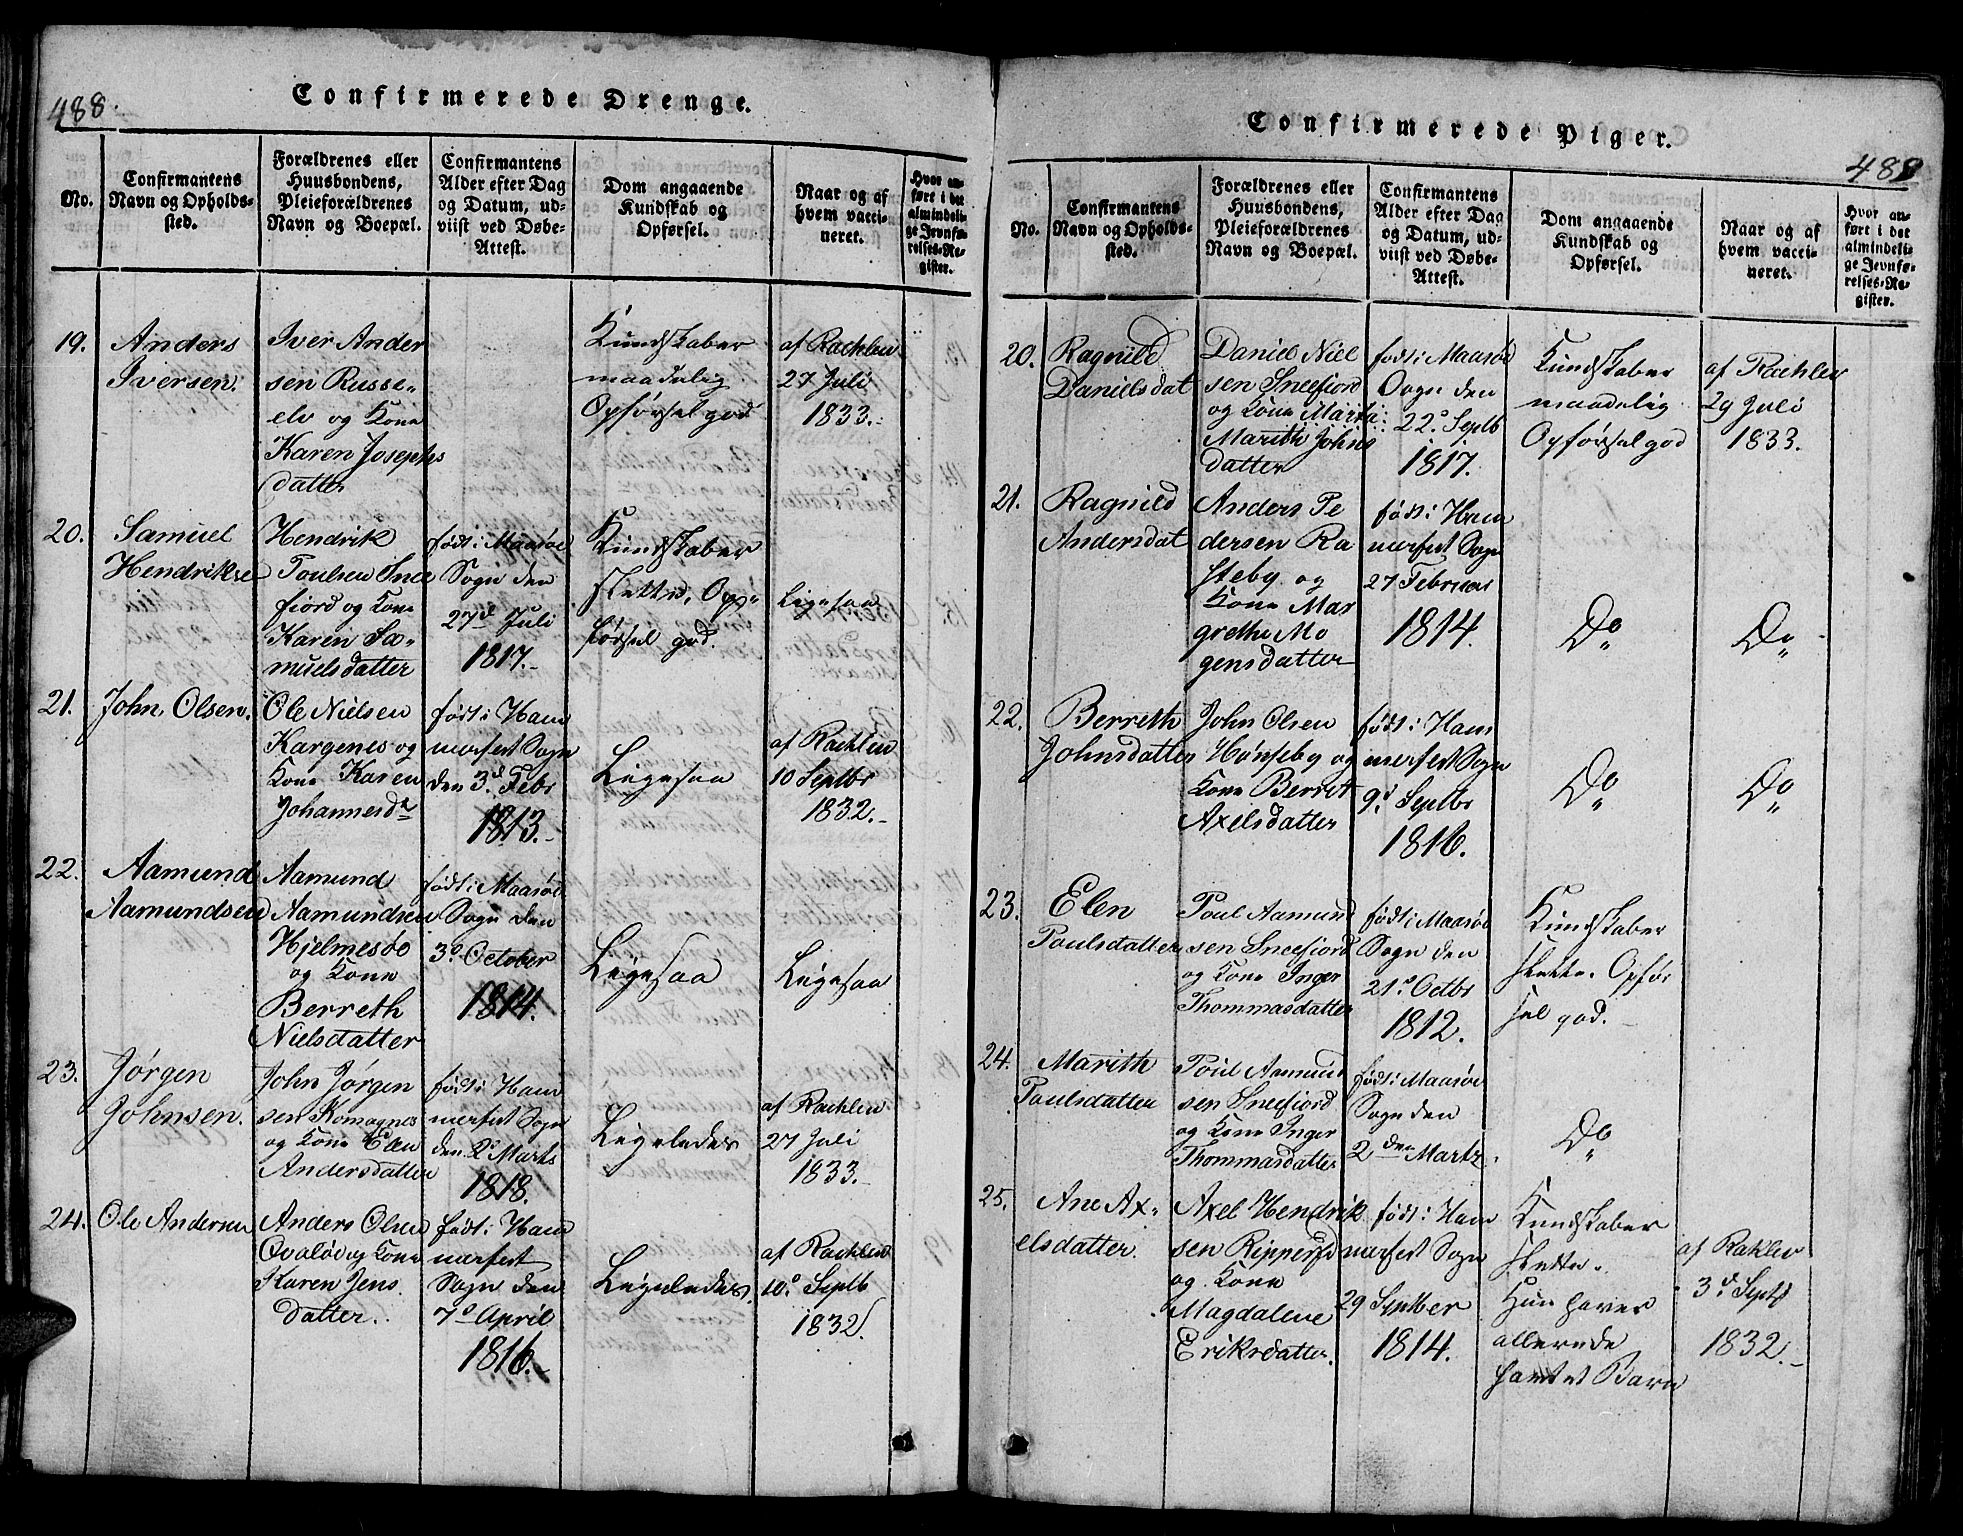 488.
Confirmerede Drenge.
No.
Confirmantens
Navn og Opholds-
sted.
Forældrenes eller
Huusbondens,
Pleieforældrenes
Navn og Boepæl.
Confirmantens
Alder efter Dag
og Datum, ud-
viist ved Døbe-
Attest.
Dom angaaende
Kundskab og
Opførsel.
Naar og af
hvem vacci-
neret.
Hvor an-
ført i det
almindeli-
ge Jevnfø-
relses-Re-
gister.
19.
Anders
Iversen.
Iver Ander
sen Russe-
elv og Kone
Karen Josephs
datter
Kundskaber
maadelig
Opførsel god
af Rachlew
27 Juli
1833.
20.
Samuel
Hendrikse
Hendrik
Poulsen Snee
fiord og Kone
Karen Sa-
muelsdatter
født i Maasøe
Sogn den
27d Juli
1817.
Kundskaber
slette, Op-
førsel god.
Ligesaa
21.
John Olsen.
Ole Nielsen
Kargenes og
Kone Karen
Johannesdr
født i Ham
merfest Sogn
den 3d Febr
1813.
Ligesaa
af Rachlew
10 Septbr
1832.
22.
Aamund
Aamundsen
Aamund
Aamundsen
Hjelmesøe
og Kone
Berreth
Nielsdatter
født i Maasøe
Sogn den
3d October
1814.
Ligesaa
Ligesaa
23.
Jørgen
Johnsen.
John Jørgen
sen Komagnes
og Kone Elen
Andersdatter
født i Ham
merfest Sogn
den 2d Marts
1818.
Ligeledes
af Rachlew
27 Juli
1833.
24.
Ole Andersen
Anders Olsen
Qvaløe og Kone
Karen Jens
datter.
født i Ham
merfest
Sogn den
7d April
1816.
Ligeledes
af Rachlew
10d Septb
1832.
Confirmerede Piger.
No.
Confirmantens
Navn og Opholds-
sted.
Forældrenes eller
Huusbondens,
Pleieforældrenes
Navn og Boepæl.
Confirmantens
Alder efter Dag
og Datum, ud-
viist ved Døbe-
Attest.
Dom angaaende
Kundskab og
Opførsel.
Naar og af
hvem vacci-
neret.
Hvor an-
ført i det
almindeli-
ge Jevnfø-
relses-Re-
gister.
20.
Ragnild
Danielsdat
Daniel Niel
sen Sneefiord
og Kone
Marith Johns
datter
født i Maasøe
Sogn den
22d Septb
1817.
Kundskaber
maadelig
Opførsel god
af Rachlew
29 Juli
1833.
21.
Ragnild
Andersdat
Anders Pe
dersen Ra
steby og
Kone Mar
grethe Mo
gensdatter
født i Ham
merfest Sogn
27 Februar
1814.
Do
Do
22.
Berreth
Johnsdatter
John Olsen
Hønseby og
Kone Berret
Axelsdatter
født i Ham
merfest Sogn
9d Septbr
1816.
Do
Do
23.
Elen
Poulsdatter
Poul Aamund
sen Sneefiord
og Kone Inger
Thommasdatter
født i Maasøe
Sogn den
21d Octbr
1812.
Kundskaber
slette. Opfør
sel god.
24.
Marith
Poulsdatter
Poul Aamund
sen Sneefiord
og Kone Inger
Thommasdatter
født i Maasøe
Sogn den
2den Martz.
Do
25.
Ane Ax-
elsdatter.
Axel Hendrik
sen Ripperfd
og Kone
Magdalene
Eriksdatter.
født i Ham
merfest Sogn
29 September
1814.
Kundskaber
slette.
Hun haver
allerede
havt et Barn
af Raklew
3d Septb
1832.